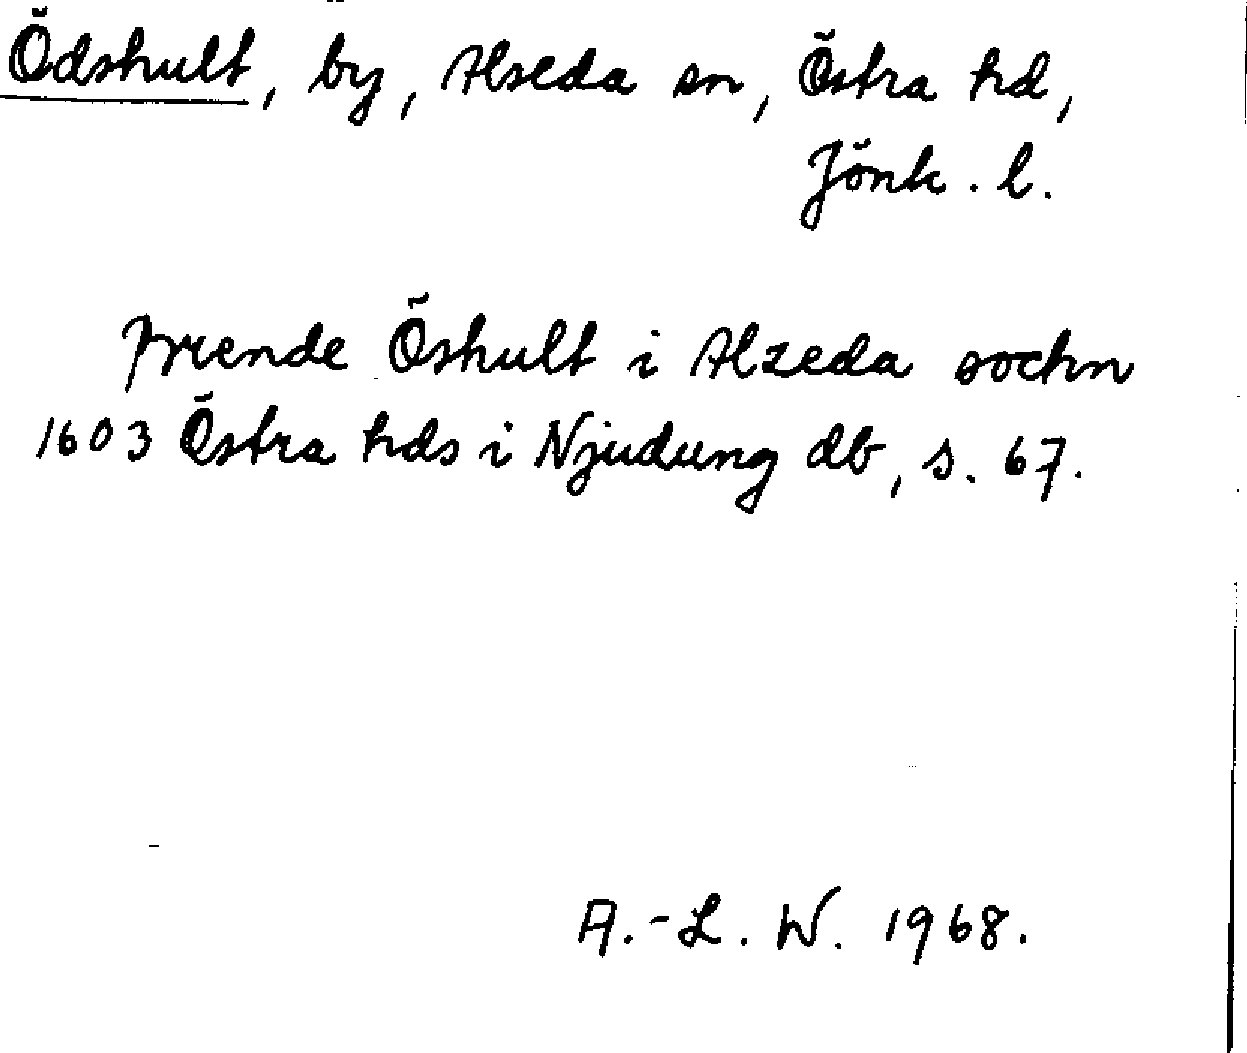 Ödshult, by, Alseda sn, Östra hd,
Jönk. l.
Öshult i Alzeda sochn
1603 Östra hds i Njudung db, s. 67.
A.-L. W. 1968.